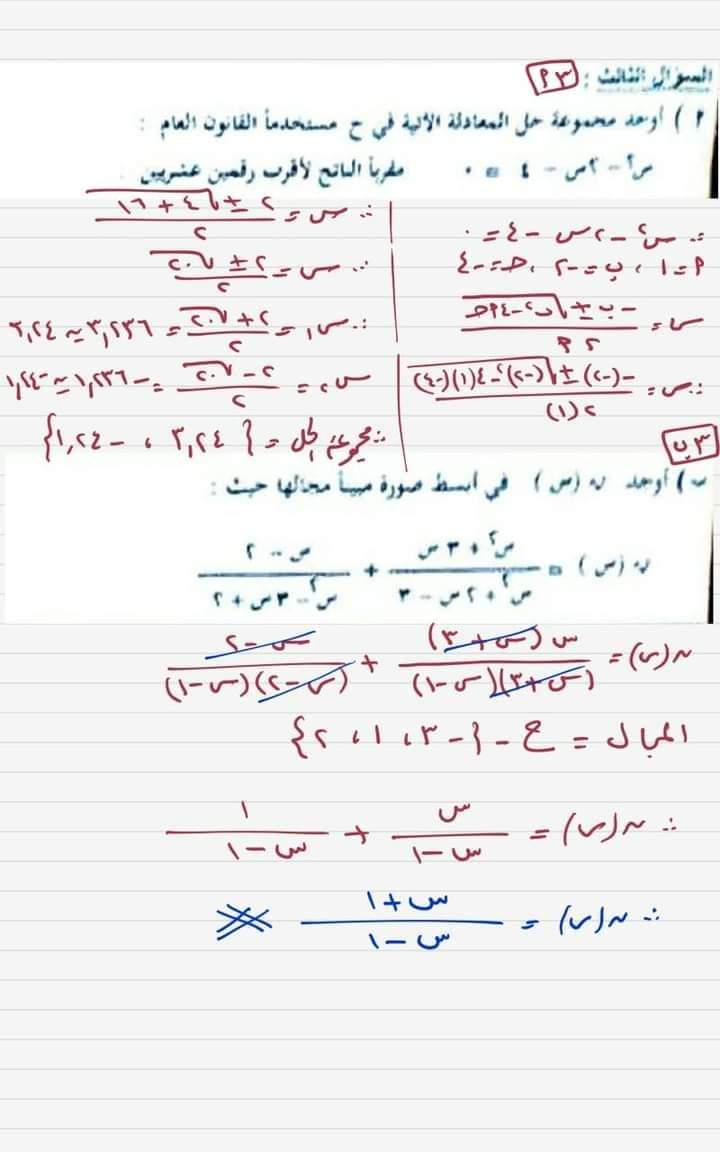 السؤال الثالث : ٣ م
٢ ) أوجد مجموعة حل المعادلة الآتية في ح مستخدماً القانون العام :
س٢ - ٢س - ٤ = ٠ مقرباً الناتج لأقرب رقمين عشريين
∴ س٢ - ٢س - ٤ = ٠
م = ١ ، ب = -٢ ، حـ = -٤
س = (-ب ± √(ب٢ - ٤م حـ)) / ٢م
∴ س = (-(-٢) ± √((-٢)٢ - ٤(١)(-٤))) / ٢(١)
∴ س = (٢ ± √(٤ + ١٦)) / ٢
∴ س = (٢ ± √٢٠) / ٢
∴ س١ = (٢ + √٢٠) / ٢ = ٣,٢٣٦ ≈ ٣,٢٤
س٢ = (٢ - √٢٠) / ٢ = -١,٢٣٦ ≈ -١,٢٤
∴ مجموعة الحل = { ٣,٢٤ ، -١,٢٤ }
٣ ب
ب ) أوجد ن (س) في أبسط صورة مبيناً مجالها حيث :
ن (س) = (س٢ + ٣ س) / (س٢ + ٢ س - ٣) + (س - ٢) / (س٢ - ٣ س + ٢)
ن(س) = س (س + ٣) / (س + ٣)(س - ١) + (س - ٢) / (س - ٢)(س - ١)
المجال = ح - { -٣ ، ١ ، ٢ }
∴ ن(س) = س / (س - ١) + ١ / (س - ١)
∴ ن(س) = (س + ١) / (س - ١)